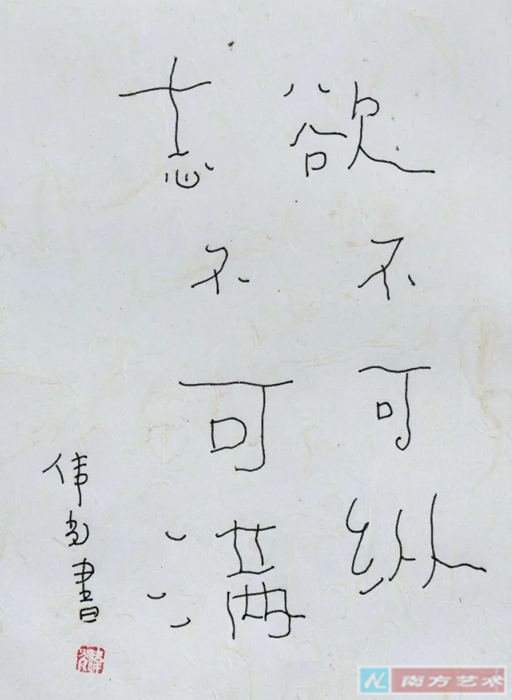 欲不可纵
志不可满
伟尚書
南方艺术